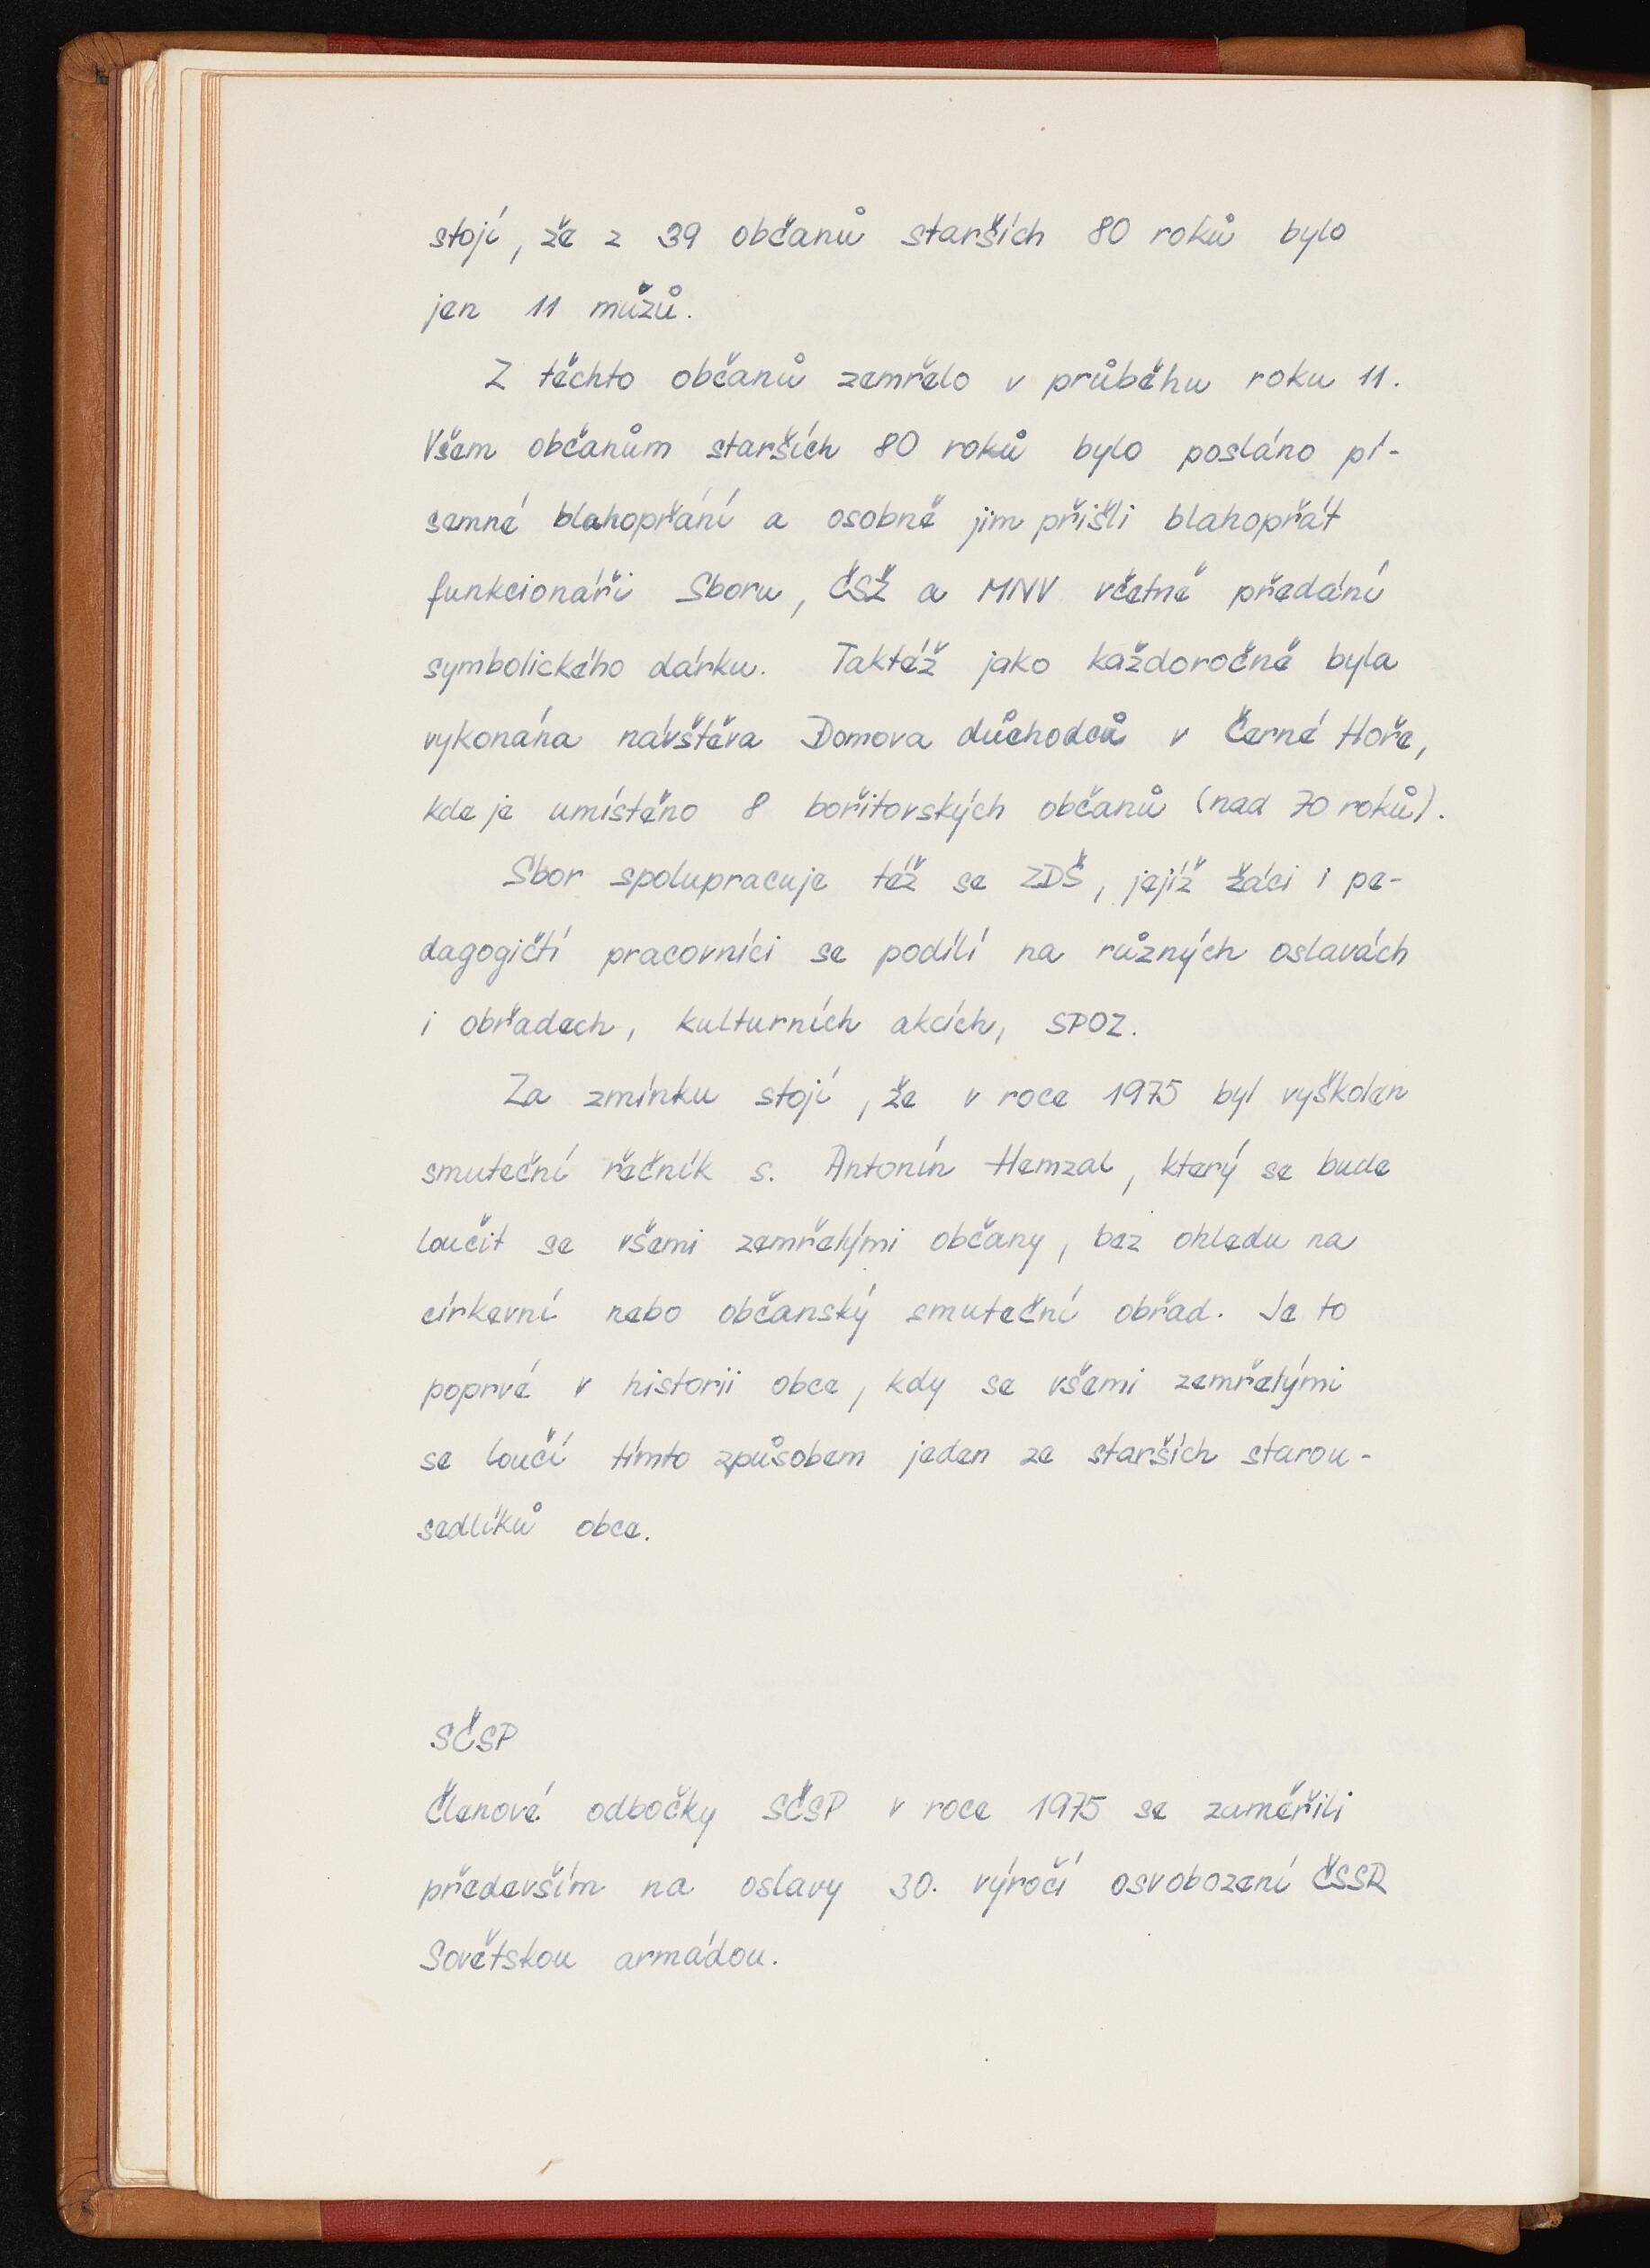 stojí, že z 39 občanů starších 80 roků bylo
jen 11 mužů.
Z těchto občanů zemřelo v průběhu roku 11.
Všem občanům starších 80 roků bylo posláno pí-
semné blahopřání a osobně jim přišli blahopřát
funkcionáři Sboru, ČSŽ a MNV včetně předání
symbolického dárku. Taktéž jako každoročně byla
vykonána návštěva Domova důchodců v Černé Hoře,
kde je umístěno 8 bořitovských občanů (nad 70 roků).
Sbor spolupracuje též se ZDŠ, jejíž žáci i pe-
dagogičtí pracovníci se podílí na různých oslavách
i obřadech, kulturních akcích, SPOZ.
Za zmínku stojí, že v roce 1975 byl vyškolen
smuteční řečník s. Antonín Hemzal, který se bude
loučit se všemi zemřelými občany, bez ohledu na
církevní nebo občanský smuteční obřad. Je to
poprvé v historii obce, kdy se všemi zemřelými
se loučí tímto způsobem jeden ze starších starou-
sedlíků obce.
SČSP
Členové odbočky SČSP v roce 1975 se zaměřili
především na oslavy 30. výročí osvobození ČSSR
Sovětskou armádou.